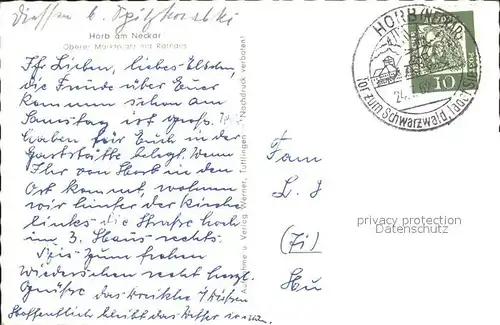 Horb am Neckar
Oberer Marktplatz mit Rathaus
Ihr Lieben, liebes Eltern,
die Freude über Euer
kommen schon am
Samstag ist groß.
haben für Euch in der
Gaststätte belegt. Wenn
Ihr von Horb in den
Ort kommt wohnen
wir hinter der Kirche
links die Straße hoch
im 3. Haus rechts.
Bis zum frohen
Wiedersehen recht herzl.
Grüße das
Hoffentlich bleibt das Wetter so
Aufnahme u. Verlag Werner, Tuttlingen Nachdruck verboten!
HORB (NECKAR)
24.
Tor zum Schwarzwald
10
Fam
L. J
(7i)
privacy protection
Datenschutz